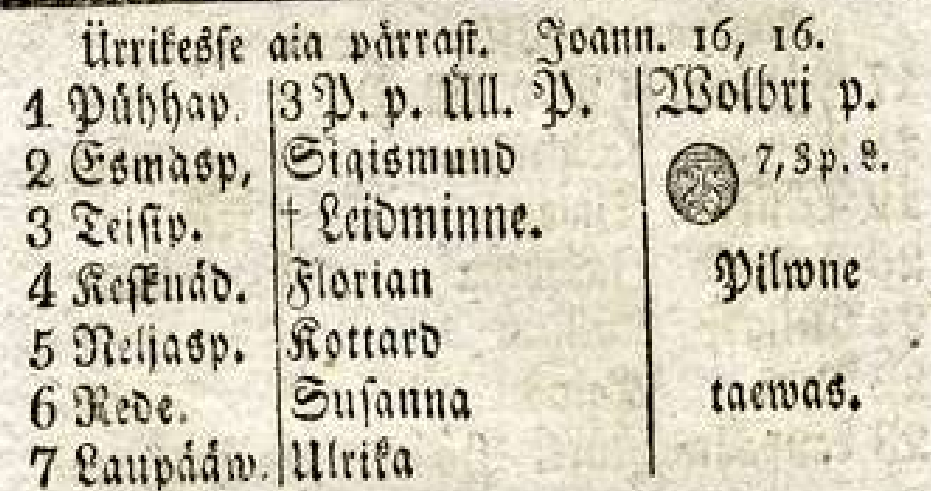 Ürrikesse aia pärrast. Joann. 16, 16.
1 Pühhap. 3 P. p. Üll. P. Wolbri p.
2 Esmasp, Sigismund 7, 3 p. L.
3 Teisip. † Leidminne.
4 Kesknäd. Florian Pilwne
5 Neljasp. Gottard
6 Rede. Susanna taewas.
7 Laupääw. Ulrika